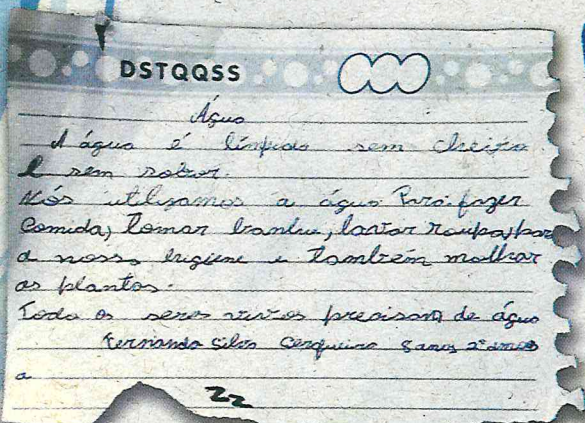 DSTQQSS
Água
A água é límpida sem cheiro
e sem sabor.
Nós utilizamos a água Para fazer
Comida, tomar banho, lavar roupa, para
a nossa higiene e também molhar
as plantas.
Todo os seres vivos precisam de água
Fernanda Silva Cerqueira 8 anos 2º ano
a